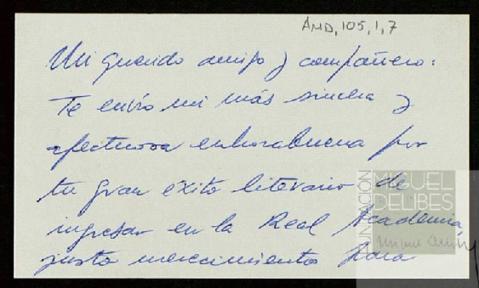 AMD, 105, 1, 7
Mi querido amigo y compañero:
Te envío mi más sincera y
afectuosa enhorabuena por
tu gran exito literario de
ingresar en la Real Academia,
justo merecimiento para
FUNDACIÓN
MIGUEL
DELIBES